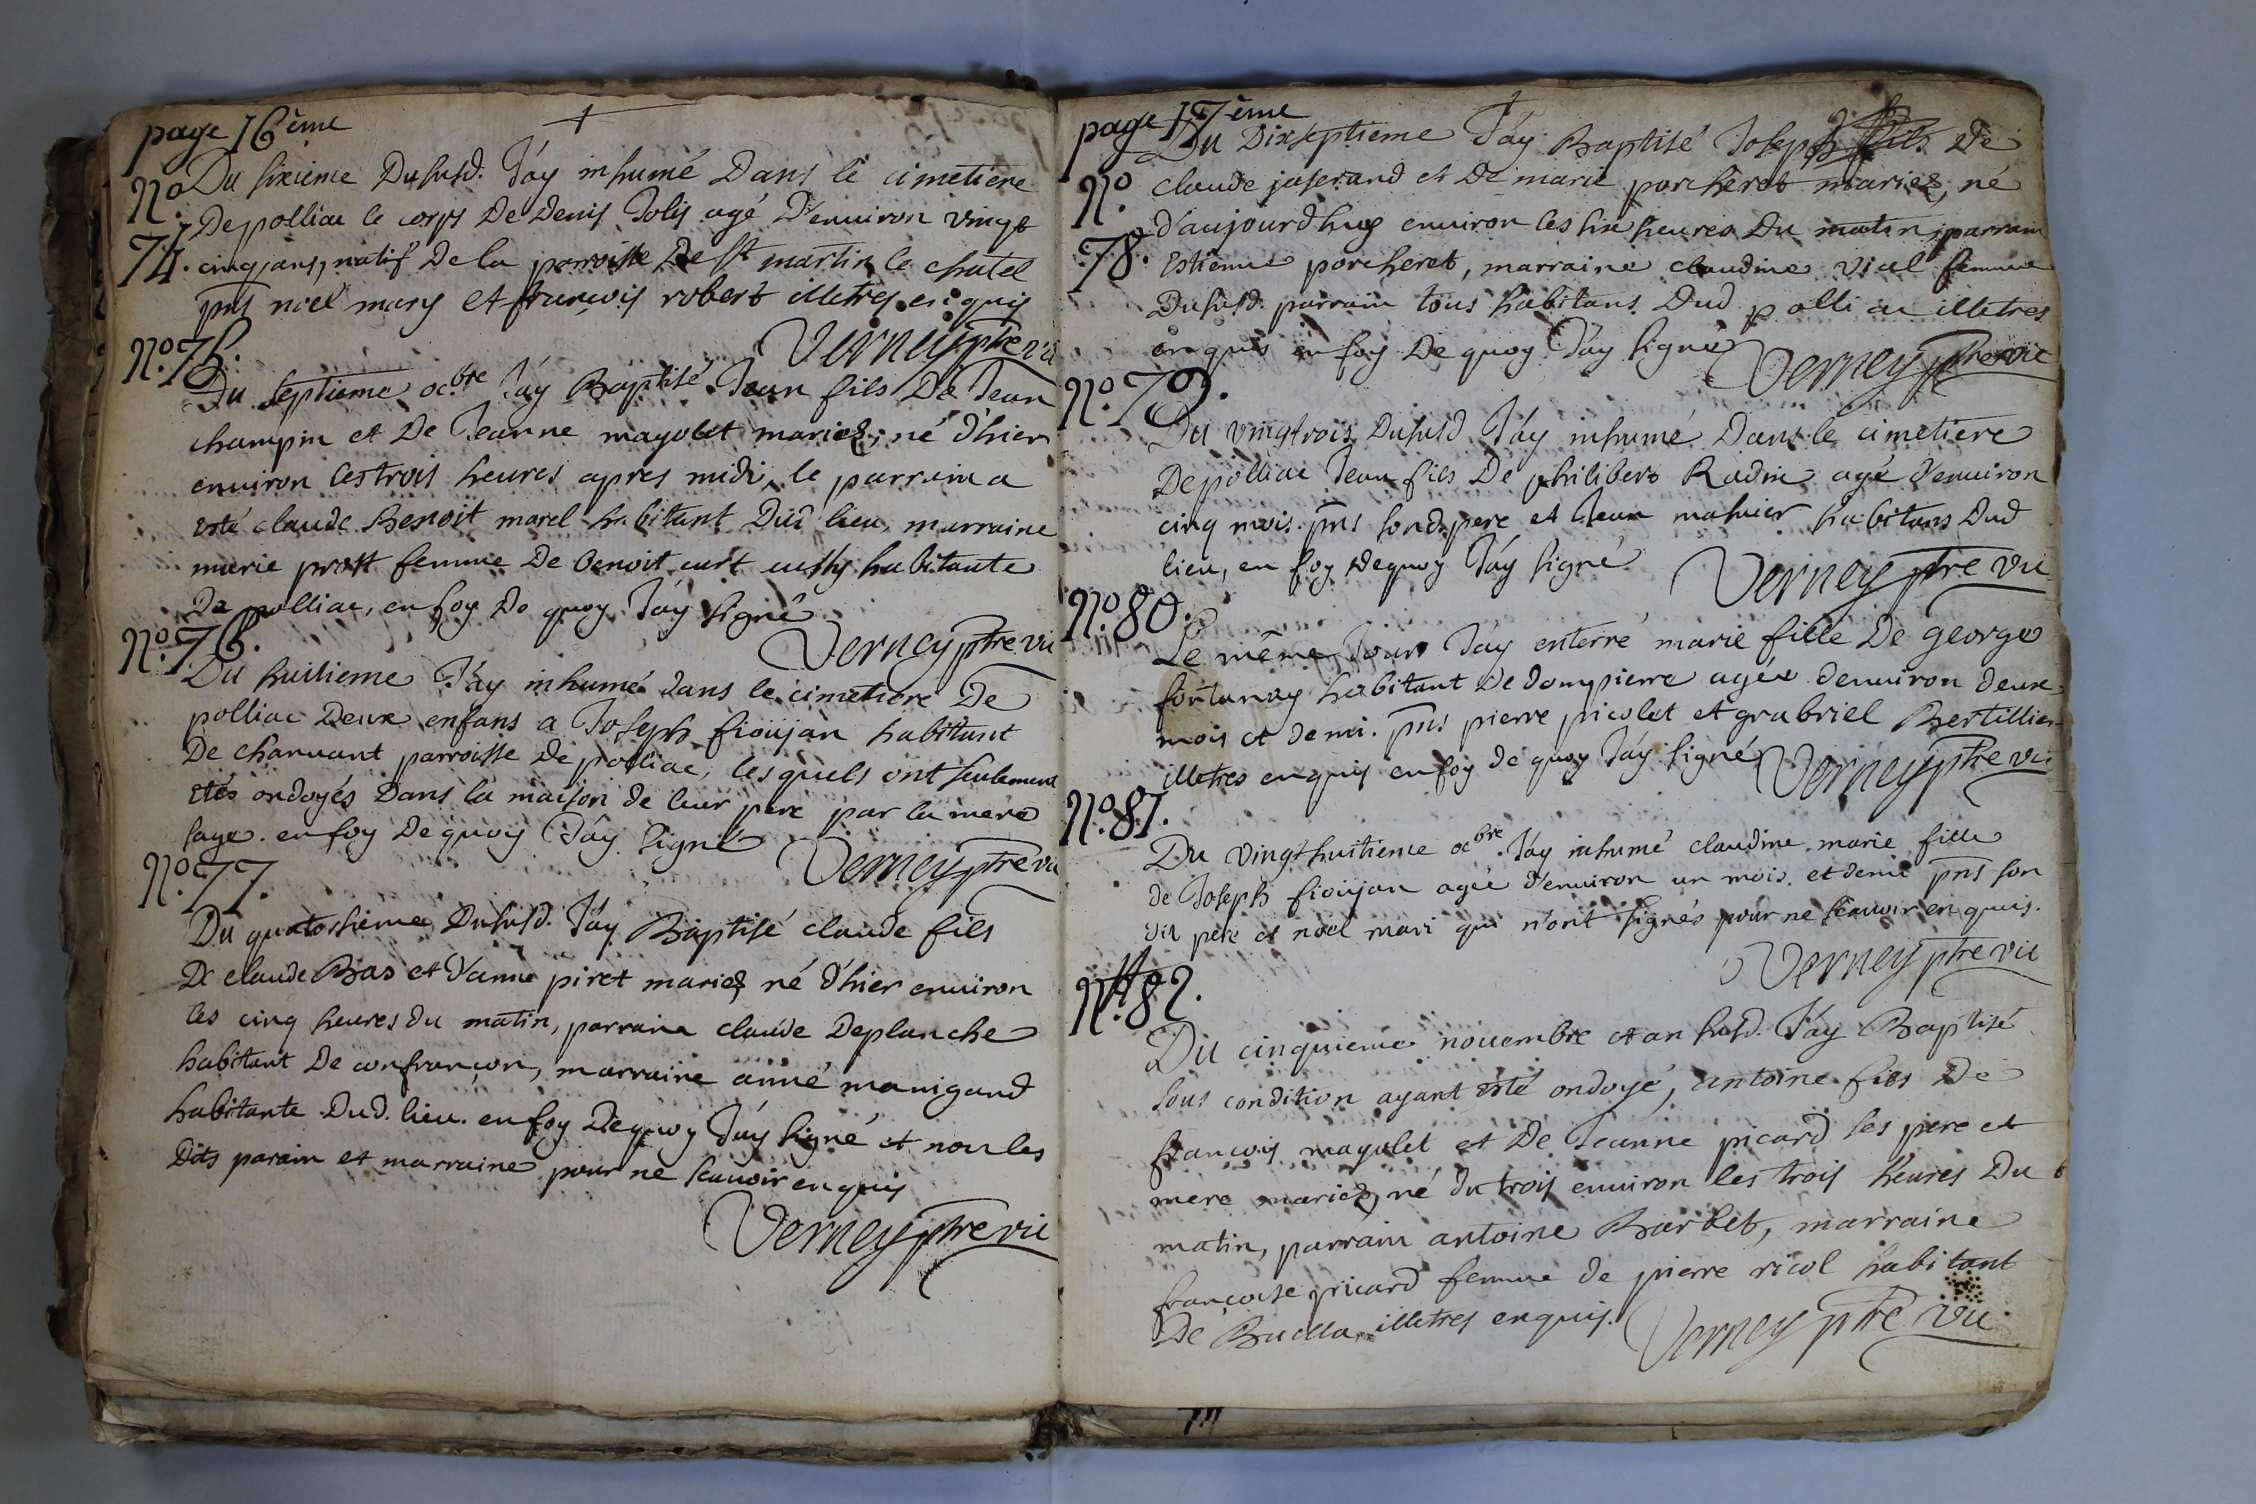 page 16ème
Du sixieme Dususd. J'áy inhumé Dans le cimetiere
N°. 74. De polliac le corps De Denis Jolis agé D'environ vingt
cinq ans, natif De la parroisse De St martin le chatel
pns noel mary et françois robert illetres enquis
Verney ptre vic
N°. 75.
Du septieme oc.bre J'áy Baptisé Jean fils De Jean
champin et De Jeanne mayolet mariez, né d'hier
environ les trois heures apres midi, le parrain a
esté claude Benoit morel habitant Dud lieu, marraine
marie prost femme De Benoit habitante
De polliac, en foy De quoy J'áy signé
Verney ptre vic
N°. 76.
Du huitieme J'áy inhumé dans le cimetiere De
polliac Deux enfans a Joseph fioujan habitant
De charvant parroisse De polliac, lesquels ont seulement
etés ondoyés Dans la maison de leur pere par la mere
sage. en foy De quoy J'áy signé
Verney ptre vic
N°. 77.
Du quatorsieme Dususd. J'áy Baptisé claude fils
De claude Bas et d'anne piret mariez né d'hier environ
les cinq heures du matin, parrain claude Deplanche
habitant De confrançon, marraine anne manigand
habitante Dud. lieu. en foy De quoy J'áy signé et non les
Dits parain et marraine pour ne scauoir enquis
Verney ptre vic
page 17ème
Du Dixseptieme J'áy Baptisé Joseph fils De
N°. 78. claude joserand et De marie porcheret mariez, né
d'aujourdhuy environ les six heures Du matin, parrain
Estienne porcheret, marraine claudine vial femme
Dususd. parrain tous habitans Dud polliac illetres
enquis en foy De quoy J'áy signé Verney ptre vic
N°. 79.
Du vingtrois Dususd J'áy inhumé Dans le cimetiere
De polliac Jean fils De philibert Radin agé d'environ
cinq mois. pns sond. pere et Jean mahuier habitans Dud
lieu, en foy De quoy J'áy signé Verney ptre vic
N°. 80.
Le même Jour J'áy enterré marie fille De george
fontanay habitant De dompierre agée d'environ deux
mois et demi. pns pierre picolet et grabriel Bertillier
illetres enquis en foy de quoy J'áy signé Verney ptre vic
N°. 81.
Du vingt huitieme oc.bre J'áy inhumé claudine marie fille
de Joseph fioujan agée d'environ un mois et demi pns son
dit pere et noel mari qui n'ont signés pour ne scauoir enquis.
Verney ptre vic
N°. 82.
Du cinquieme novembre et an susd. J'áy Baptisé
sous condition ayant esté ondoyé, antoine fils De
françois mayolet et De Jeanne picard ses pere et
mere mariez, né du trois environ les trois heures Du
matin, parrain antoine Barbet, marraine
françoise picard femme de pierre ricol habitant
De Buella, illetres enquis. Verney ptre vic